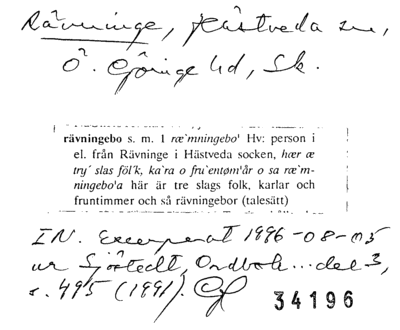 Rävninge, Hästveda sn,
Ö. Göinge hd, Sk.
rävningebo s. m. 1 ræ`mningebo' Hv: person i
el. från Rävninge i Hästveda socken, hær æ
try´ slas föl'k, ka`ra o fru`entøm'år o sa ræ`m-
ningebo'a här är tre slags folk, karlar och
fruntimmer och så rävningebor (talesätt)
IN. Excerperat 1996-08-05
ur Sjöstedt, Ordbok...del 3,
s. 495 (1991).
34196